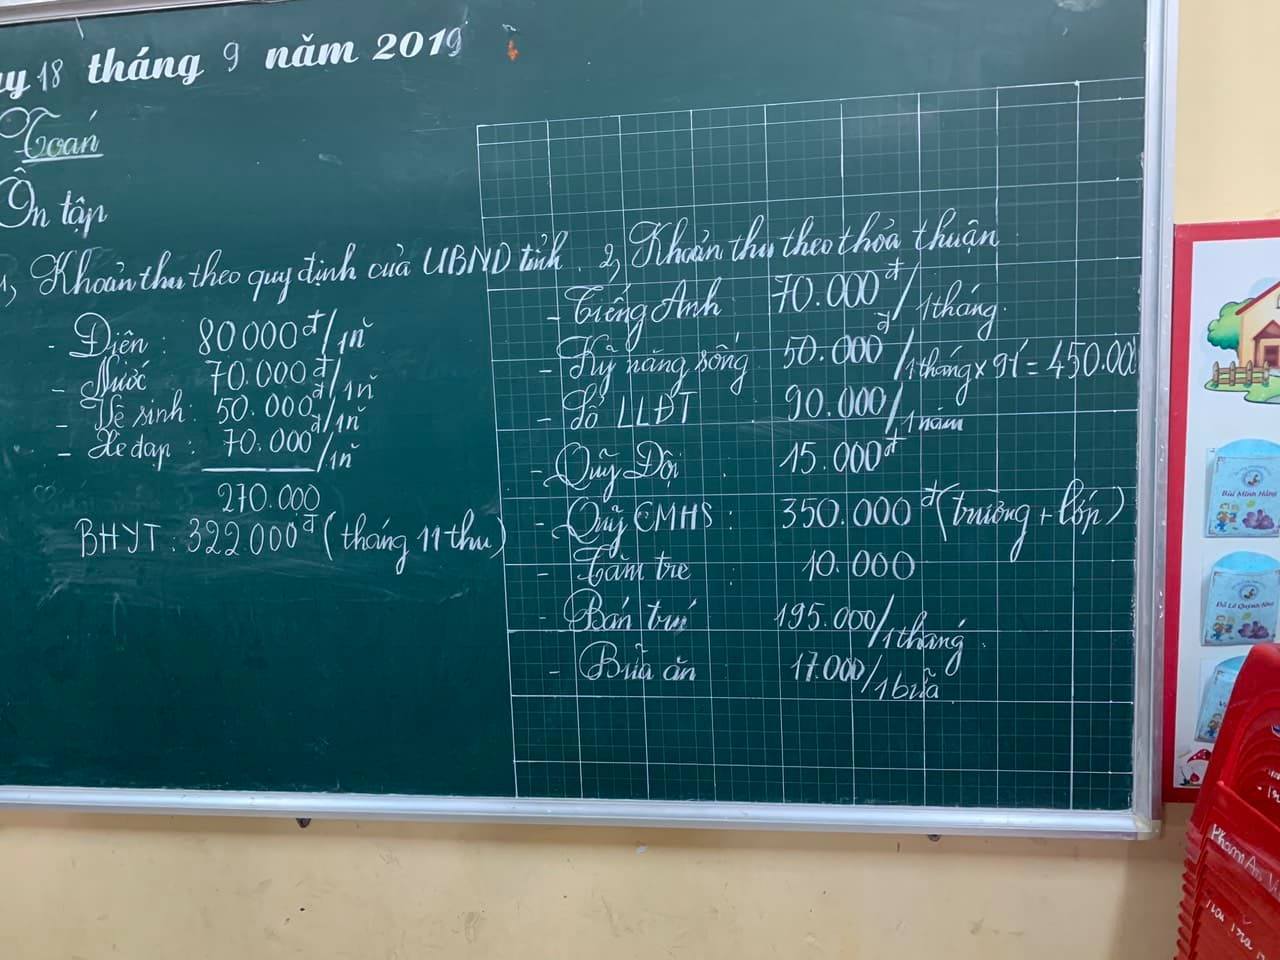 18 tháng 9 năm 2019
Toán
Ôn tập
1, Khoản thu theo quy định của UBND tỉnh.
- Điện: 80000đ/1n
- Nước 70.000đ/1n
- Vệ sinh: 50.000đ/1n
- Xe đạp: 70.000đ/1n
270.000
BHYT: 322.000đ (tháng 11 thu)
2, Khoản thu theo thỏa thuận
- Tiếng Anh: 70.000đ/1tháng.
- Kỹ năng sống 50.000đ/1tháng x 9t = 450.00
- Sổ LLĐT: 90.000/1năm
- Quỹ Đội: 15.000đ
- Quỹ CMHS: 350.000đ (trường + lớp)
- Tăm tre: 10.000
- Bán trú 195.000/1tháng.
- Bữa ăn: 17.000/1bữa
Bùi Minh Hằng
Đỗ Lê Quỳnh Như
Phạm An